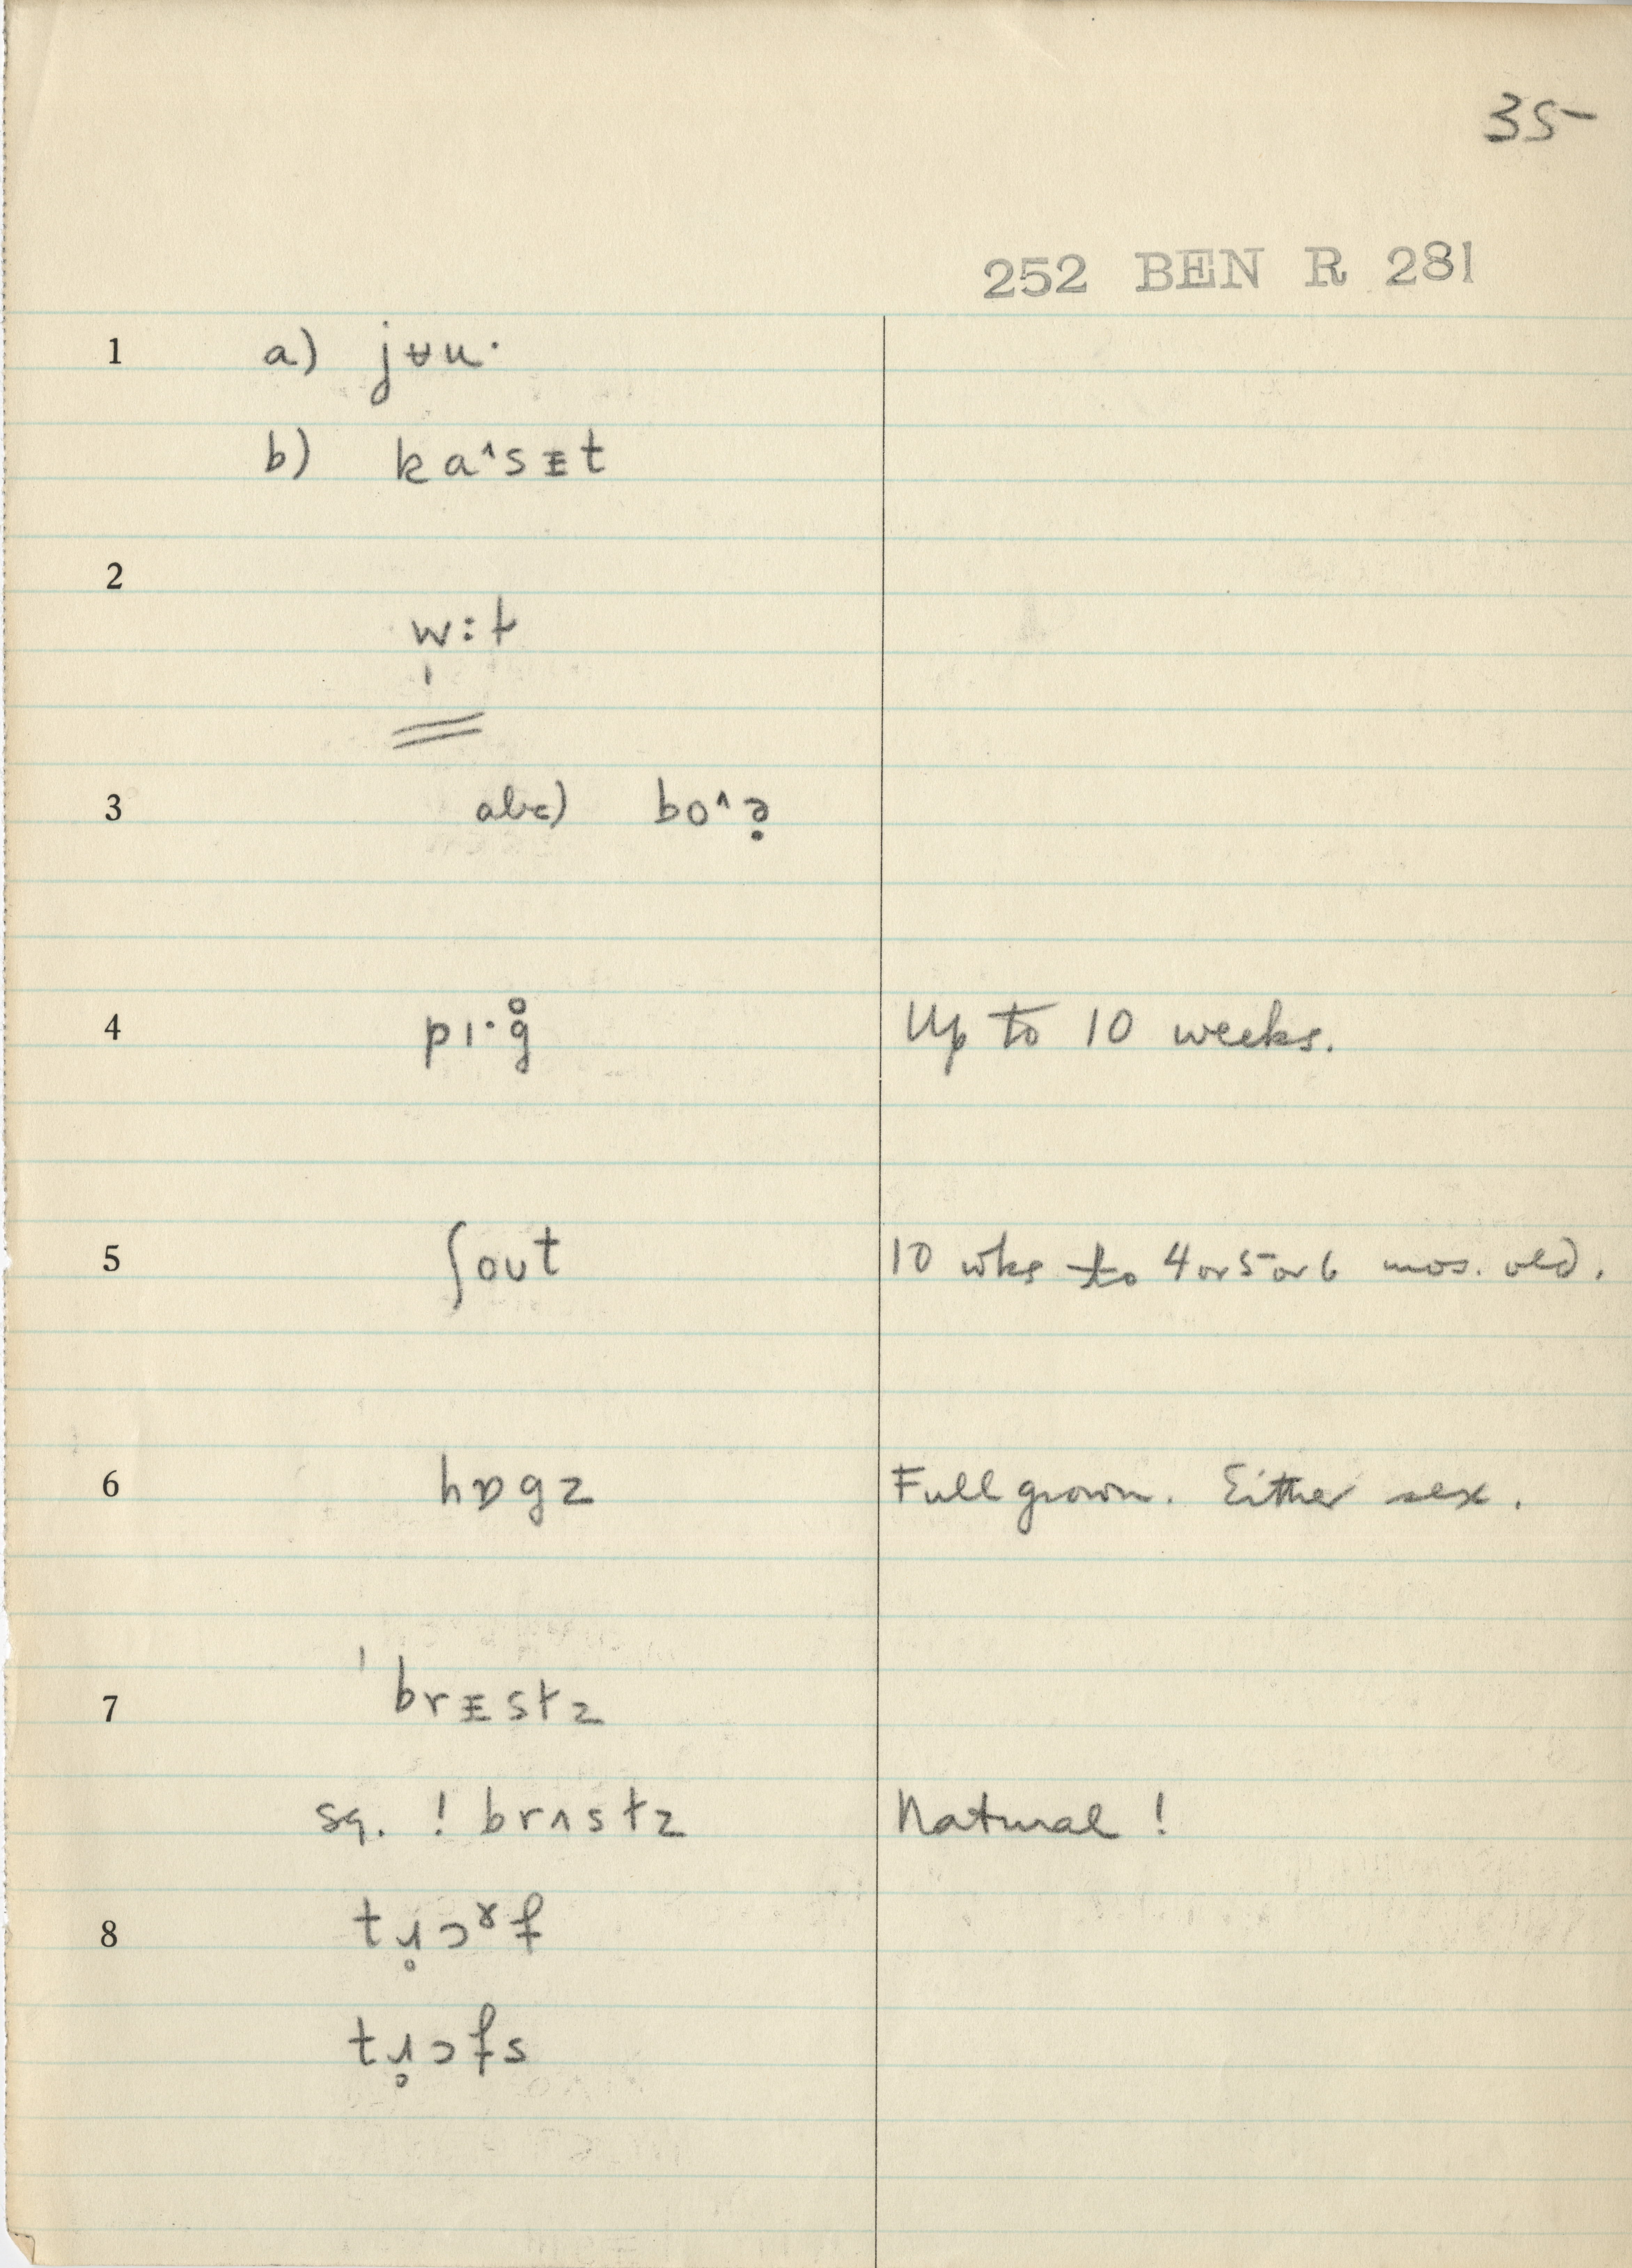 35
252 BEN R 281
1 a) jʉu·
b) ka^sᴇt
2
w:t
3 abc) bo^ə̣
4 pɪ·g̊ Up to 10 weeks.
5 ʃoʊt 10 wks to 4 or 5 or 6 mos. old.
6 hɒgz Full grown. Either sex.
7 ˈbrᴇstz
sq. ! brʌstz Natural !
8